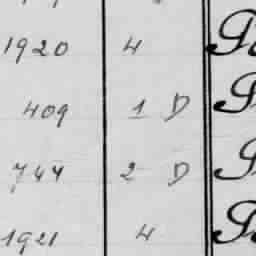 1920 4
409 1 D
744 2 D
1921 4